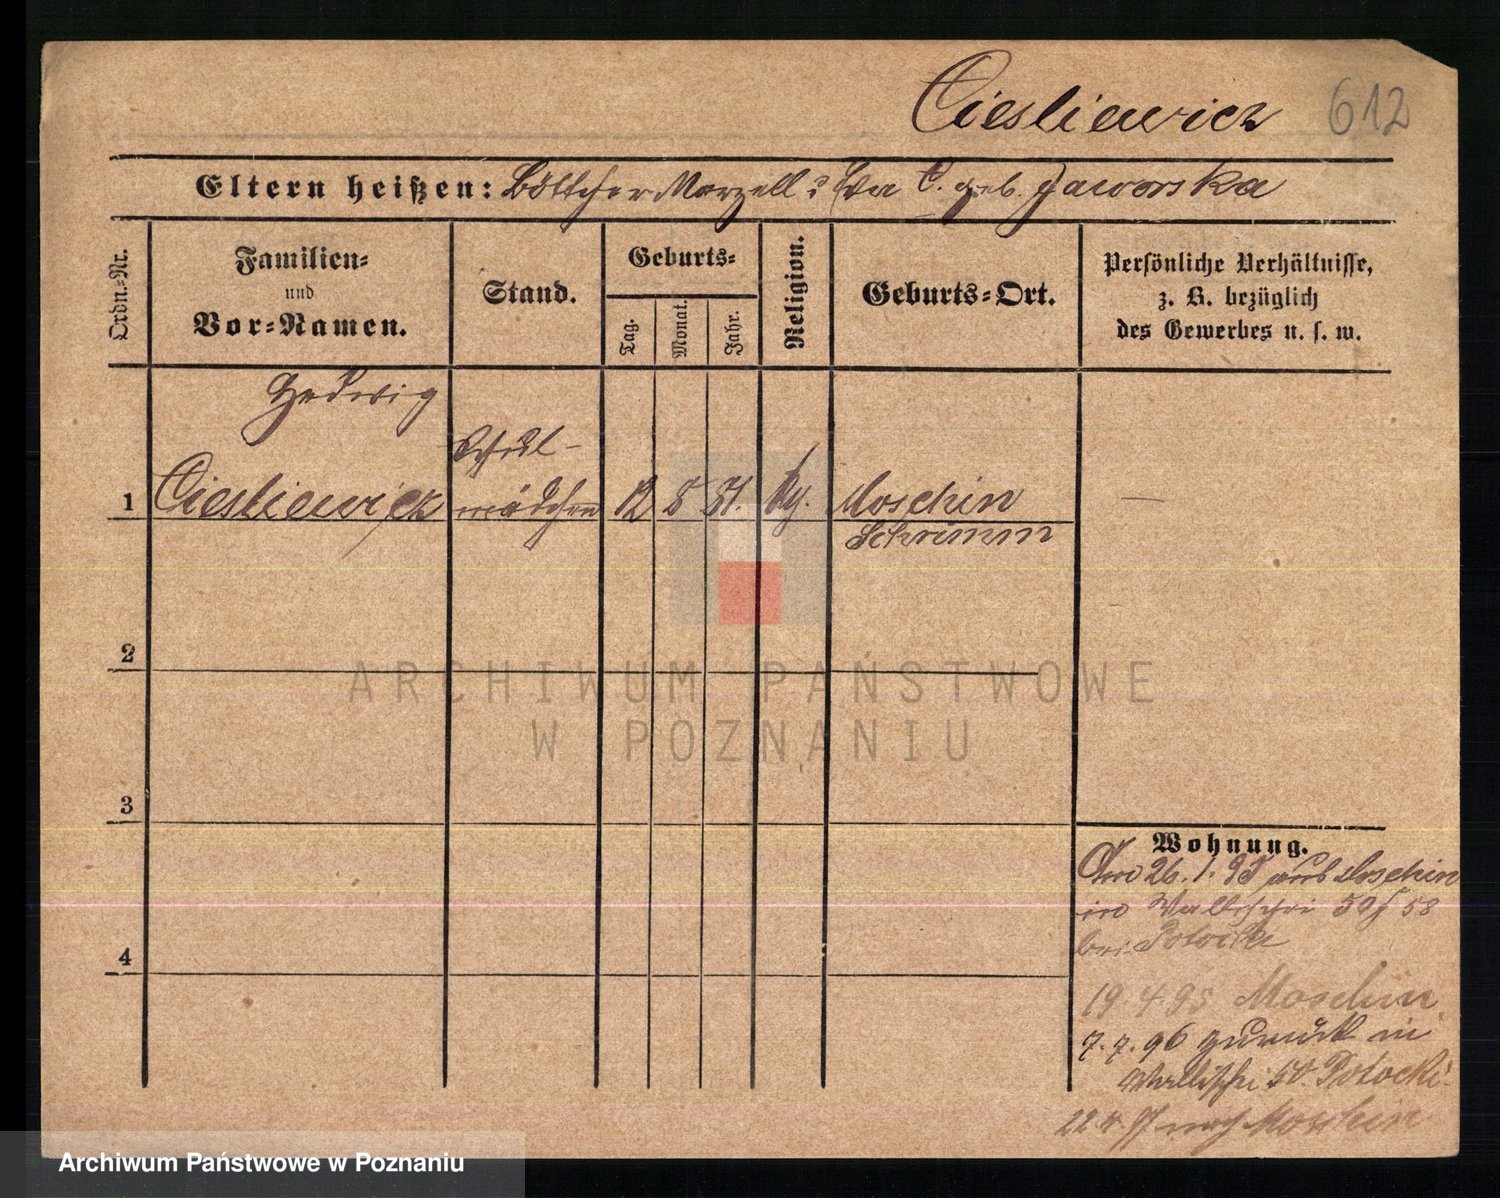 Ciesliewicz 612
Eltern heißen: Böttcher Marzell u Eva C. geb. Jaworska
Ordn.-Nr.
Familien-
und
Vor-Namen.
Stand.
Geburts-
Tag.
Monat.
Jahr.
Religion.
Geburts-Ort.
Persönliche Verhältnisse,
z. B. bezüglich
des Gewerbes u. s. w.
Hedwig
Schul-
1 Ciesliewicz mädchen 12 8 81. kg. Moschin —
Schrimm
2
ARCHIWUM PAŃSTWOWE
W POZNANIU
3
4
Wohnung.
26. 1. 95 aus Moschin
in Wallischei 50/ 58
bei Potocka
19. 4. 95 Moschin
7. 7. 96 zurück in
Wallischei 50. Potocki.
22. 4. 97 nach Moschin
Archiwum Państwowe w Poznaniu